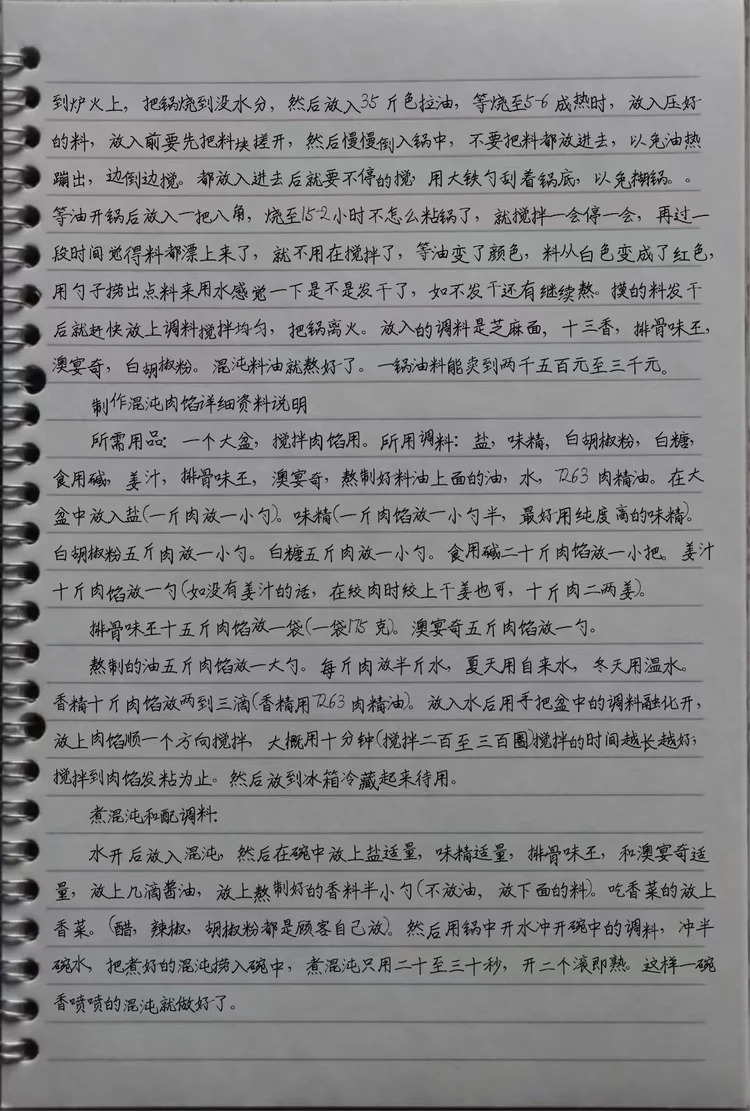 到炉火上，把锅烧到没水分，然后放入35斤色拉油，等烧至5-6成热时，放入压好
的料，放入前要先把料块搓开，然后慢慢倒入锅中，不要把料都放进去，以免油热
蹦出，边倒边搅。都放入进去后就要不停的搅，用大铁勺刮着锅底，以免糊锅。。
等油开锅后放入一把八角，烧至15-2小时不怎么粘锅了，就搅拌一会停一会，再过一
段时间觉得料都漂上来了，就不用在搅拌了，等油变了颜色，料从白色变成了红色，
用勺子捞出点料来用水感觉一下是不是发干了，如不发干还有继续熬。摸的料发干
后就赶快放上调料搅拌均匀，把锅离火。放入的调料是芝麻面，十三香，排骨味王，
澳宴奇，白胡椒粉。混沌料油就熬好了。一锅油料能卖到两千五百元至三千元。
制作混沌肉馅详细资料说明
所需用品：一个大盆，搅拌肉馅用。所用调料：盐，味精，白胡椒粉，白糖，
食用碱，姜汁，排骨味王，澳宴奇，熬制好料油上面的油，水，7263肉精油。在大
盆中放入盐(一斤肉放一小勺)。味精(一斤肉馅放一小勺半，最好用纯度高的味精)。
白胡椒粉五斤肉放一小勺。白糖五斤肉放一小勺。食用碱二十斤肉馅放一小把。姜汁
十斤肉馅放一勺(如没有姜汁的话，在绞肉时绞上干姜也可，十斤肉二两姜)。
排骨味王十五斤肉馅放一袋(一袋175克)。澳宴奇五斤肉馅放一勺。
熬制的油五斤肉馅放一大勺。每斤肉放半斤水，夏天用自来水，冬天用温水。
香精十斤肉馅放两到三滴(香精用7263肉精油)。放入水后用手把盆中的调料融化开，
放上肉馅顺一个方向搅拌，大概用十分钟(搅拌二百至三百圈)搅拌的时间越长越好；
搅拌到肉馅发粘为止。然后放到冰箱冷藏起来待用。
煮混沌和配调料：
水开后放入混沌，然后在碗中放上盐适量，味精适量，排骨味王，和澳宴奇适
量，放上几滴酱油，放上熬制好的香料半小勺(不放油，放下面的料)。吃香菜的放上
香菜。(醋，辣椒，胡椒粉都是顾客自己放)。然后用锅中开水冲开碗中的调料，冲半
碗水，把煮好的混沌捞入碗中，煮混沌只用二十至三十秒，开二个滚即熟。这样一碗
香喷喷的混沌就做好了。